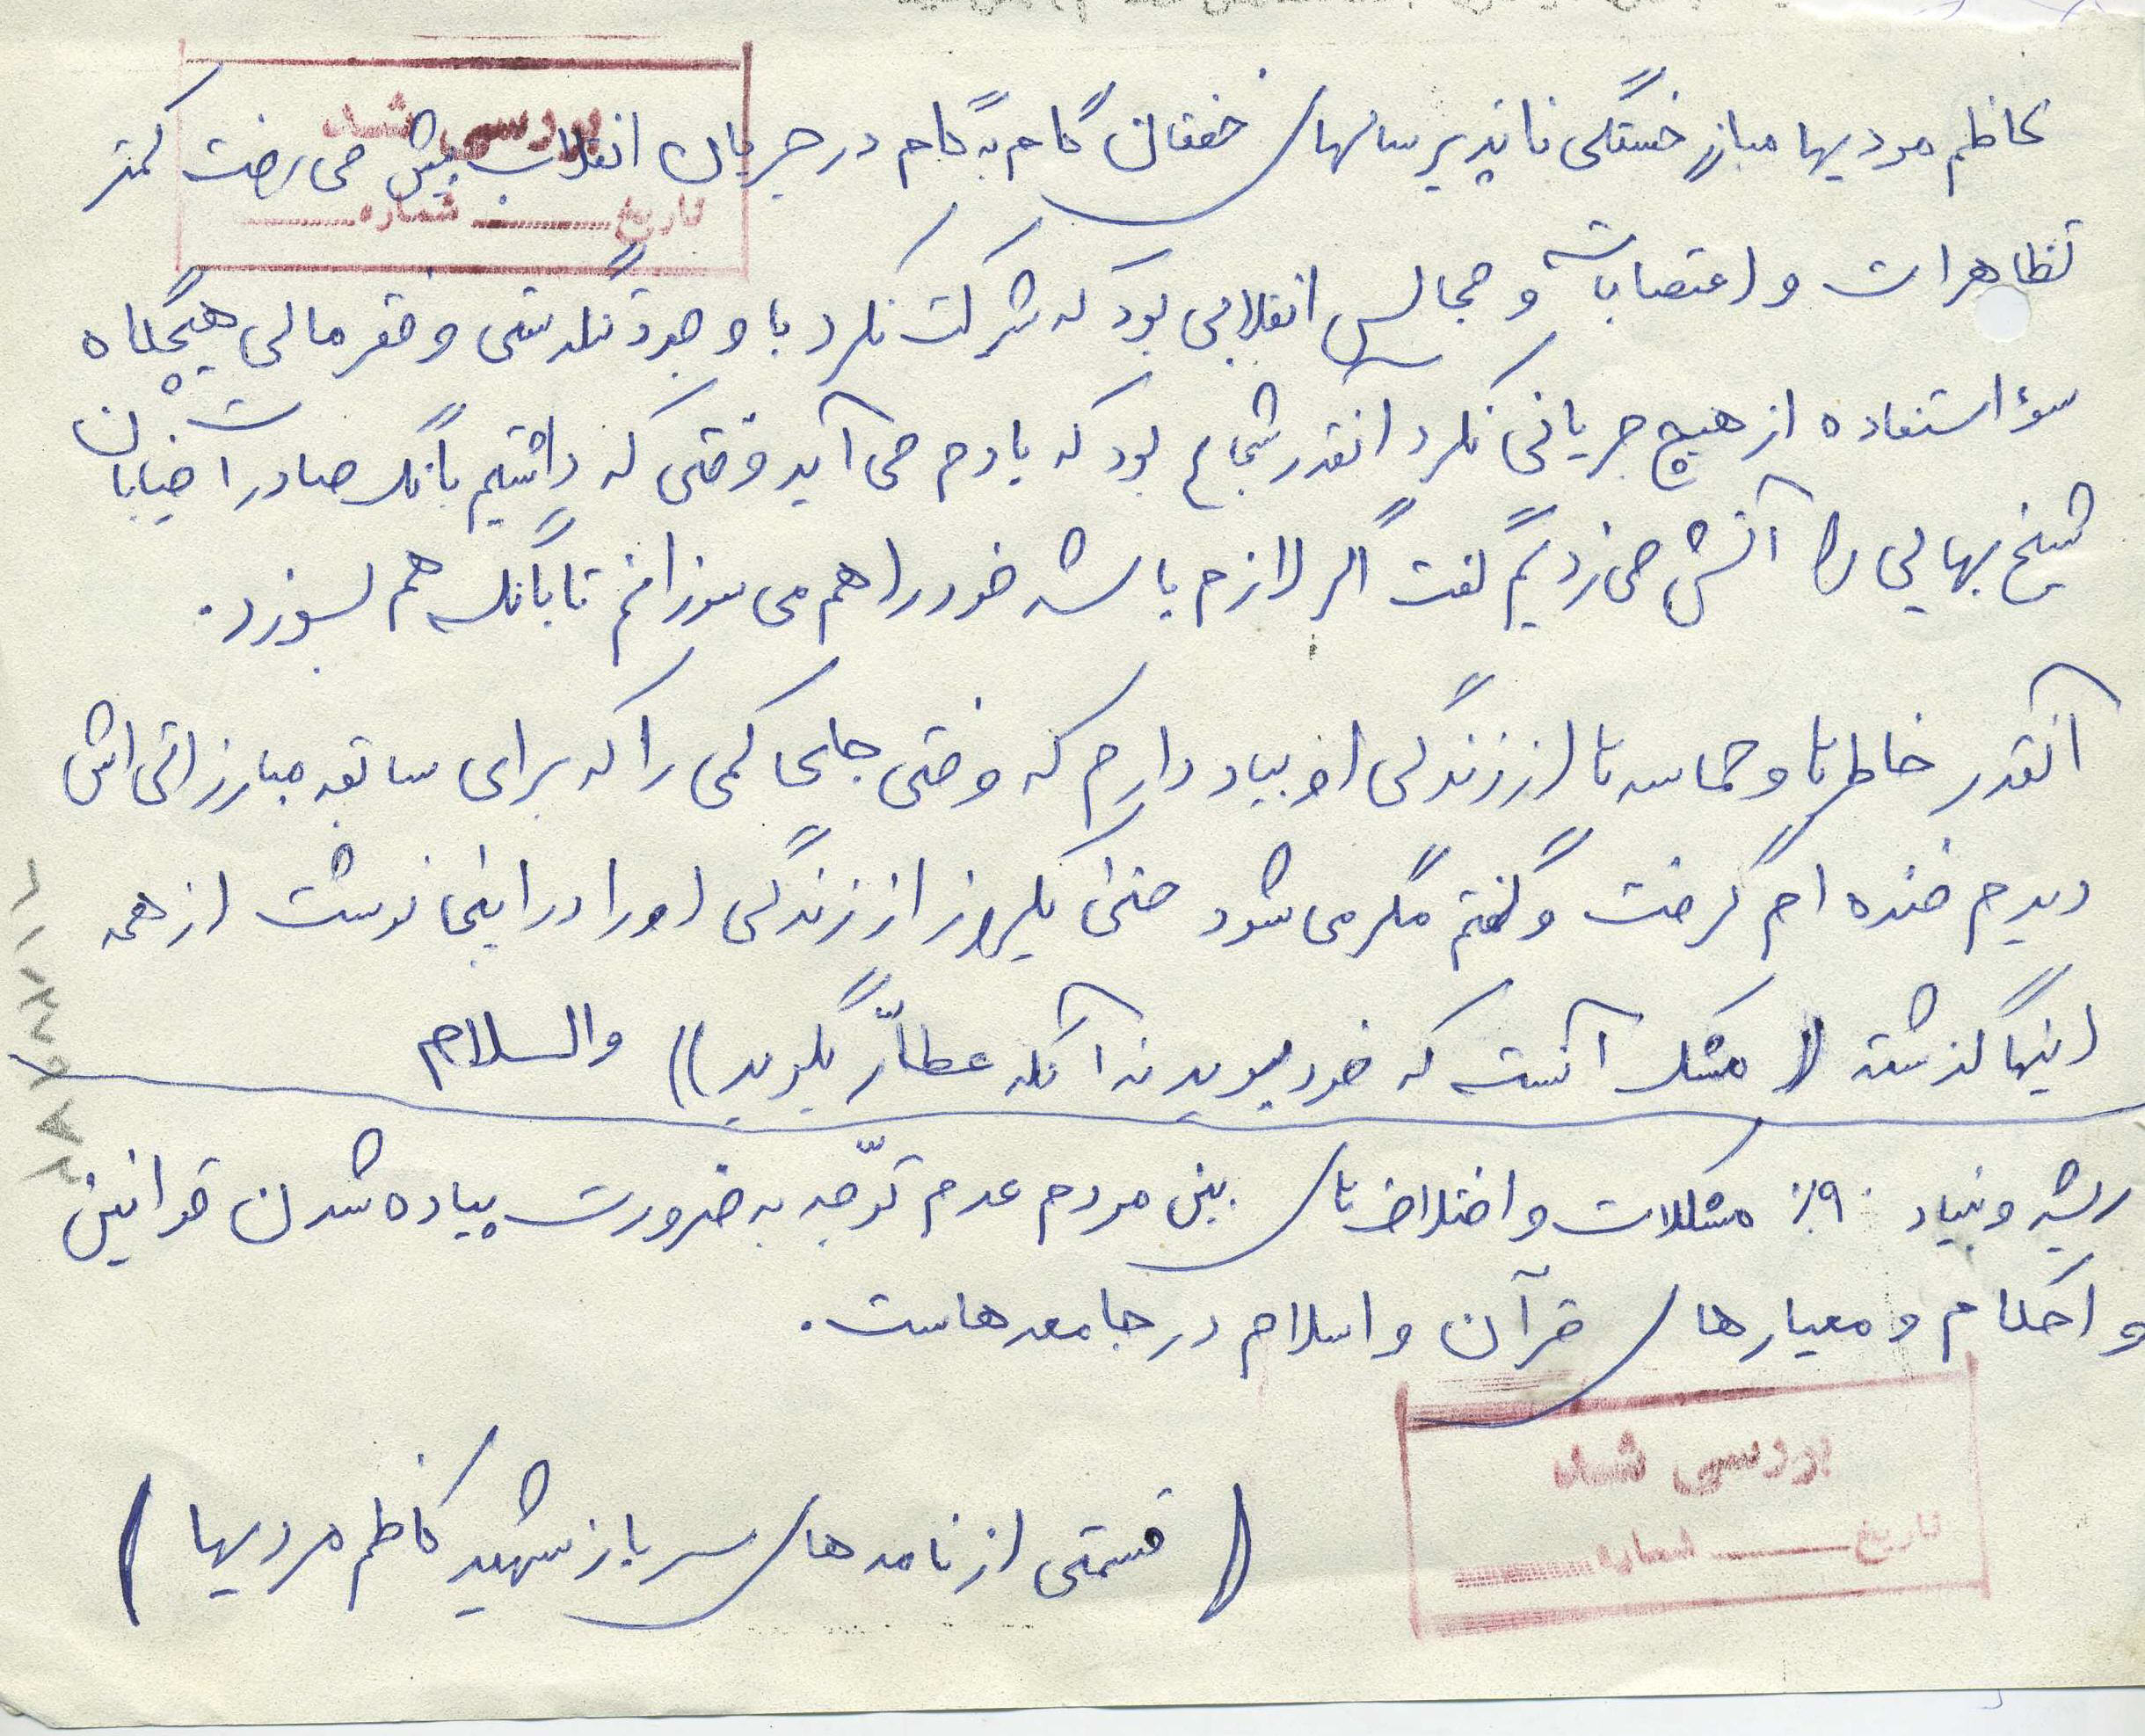 کاظم مردیها مبارز خستگی ناپذیر سالهای خفقان گام به گام در جریان انقلاب پیش می رفت کمتر
بررسی شد
تاریخ شماره
تظاهرات و اعتصابات و مجالس انقلابی بود که شرکت نکرد با وجود تنگدستی و فقر مالی هیچگاه
سؤ استفاده از هیچ جریانی نکرد انقدر شجاع بود که یادم می آید وقتی که داشتیم بانک صادرات خیابان
شیخ بهایی را آتش می زدیم گفت اگر لازم باشد خود را هم می سوزانم تا بانک هم بسوزد.
آنقدر خاطره‌ها و حماسه‌ها از زندگی او بیاد دارم که وقتی جای کمی را که برای سابقه مبارزاتی اش
دیدم خنده ام گرفت و گفتم مگر می شود حتی یکروز از زندگی او را در اینجا نوشت از همه
اینها گذشته (( مشک آنست که خود ببوید نه آنکه عطّار بگوید )) والسلام
ریشه و بنیاد ۹۰٪ مشکلات و اختلاف‌های بین مردم عدم توّجه به ضرورت پیاده شدن قوانین
و احکام و معیارهای قرآن و اسلام در جامعه هاست.
بررسی شد
تاریخ شماره
( قسمتی از نامه های سرباز شهید کاظم مردیها )